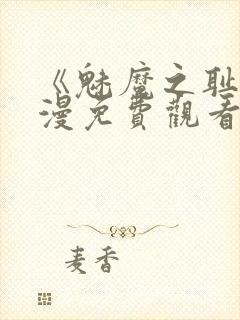 《魅魔之耻
漫免費觀看
麦香